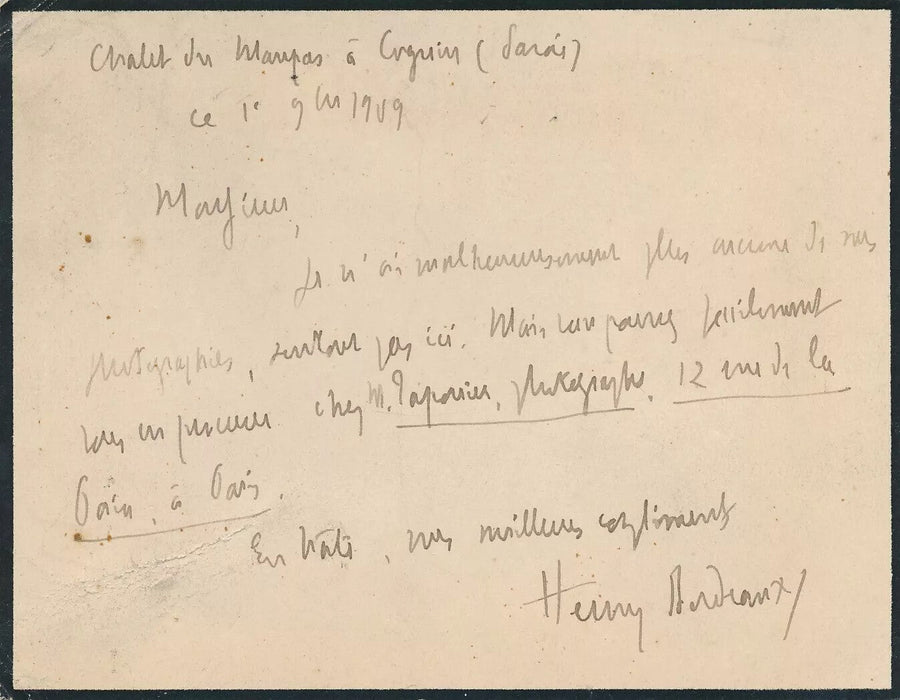 Chalet du Maupas à Cognin (Savoie)
ce 1er 9bre 1909
Monsieur,
Je n'ai malheureusement plus aucune de mes
photographies, surtout pas ici. Mais vous pourrez facilement
vous en procurer chez M. Taponier, photographe, 12 rue de la
Paix, à Paris.
En hâte, mes meilleurs compliments
Henry Bordeaux